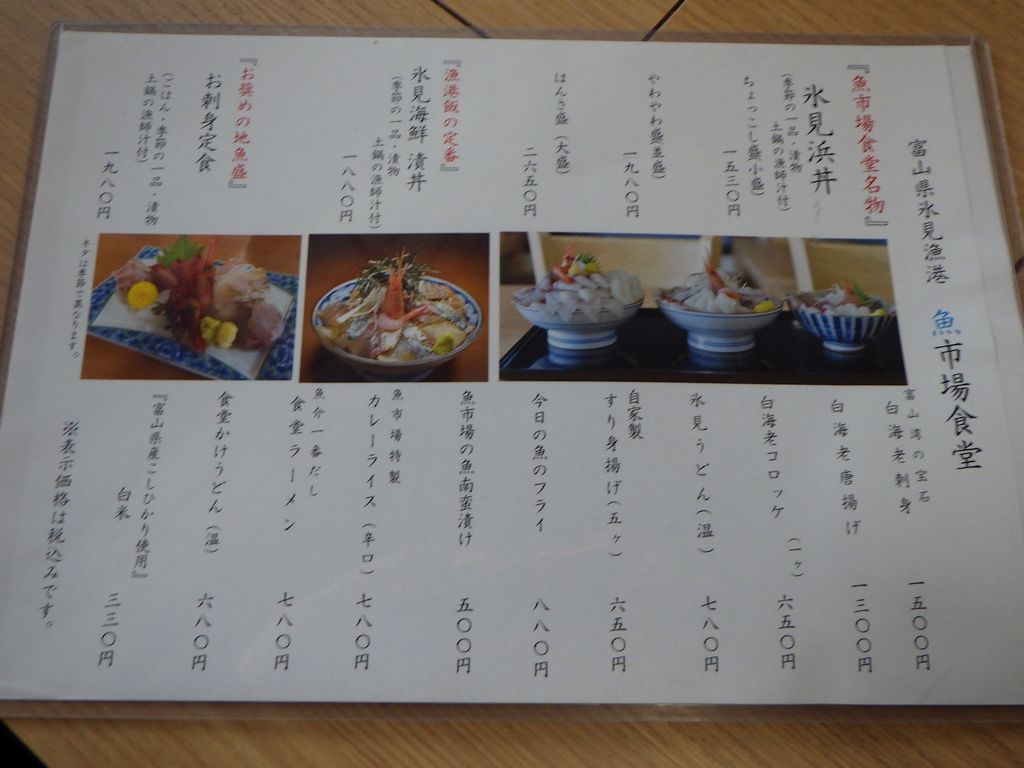 富山県氷見漁港 魚市場食堂
『魚市場食堂名物』
氷見浜丼
(季節の一品・漬物
土鍋の漁師汁付)
ちょっこし盛(小盛)
一五三〇円
やわやわ盛(並盛)
一九八〇円
はんさ盛(大盛)
二六五〇円
『漁港飯の定番』
氷見海鮮漬丼
(季節の一品・漬物
土鍋の漁師汁付)
一八八〇円
『お奨めの地魚盛』
お刺身定食
(ごはん・季節の一品・漬物
土鍋の漁師汁付)
一九八〇円
ネタは季節で異なります。
富山湾の宝石
白海老刺身 一五〇〇円
白海老唐揚げ 一三〇〇円
白海老コロッケ (一ヶ) 六五〇円
氷見うどん(温) 七八〇円
自家製
すり身揚げ(五ヶ) 六五〇円
今日の魚のフライ 八八〇円
魚市場の魚南蛮漬け 五〇〇円
魚市場特製
カレーライス(辛口) 七八〇円
魚介一番だし
食堂ラーメン 七八〇円
食堂かけうどん(温) 六八〇円
『富山県産こしひかり使用』
白米 三三〇円
※表示価格は税込みです。